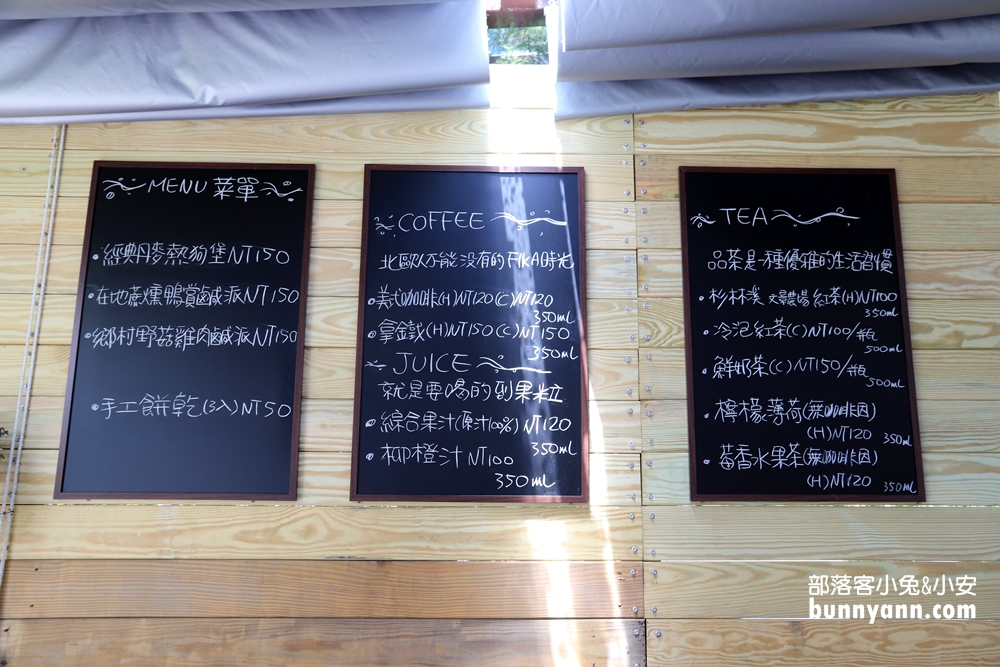 MENU 菜單
• 經典丹麥熱狗堡NT150
• 在地蔗燻鴨賞鹹派NT150
• 鄉村野菇雞肉鹹派NT150
• 手工餅乾(3入)NT50
COFFEE
北歐人不能沒有的FIKA時光
• 美式咖啡(H)NT120(C)NT120
350mL
• 拿鐵(H)NT150(C)NT150
350mL
JUICE
就是要喝的到果粒
• 綜合果汁(原汁100%)NT120
350mL
• 柳橙汁NT100
350mL
TEA
品茶是一種優雅的生活習慣
• 杉林溪 農場 紅茶(H)NT100
350mL
• 冷泡紅茶(C)NT100/瓶
500mL
• 鮮奶茶(C)NT150/瓶
500mL
• 檸檬薄荷(無咖啡因)
(H)NT120 350mL
• 莓香水果茶(無咖啡因)
(H)NT120 350mL
部落客小兔&小安
bunnyann.com